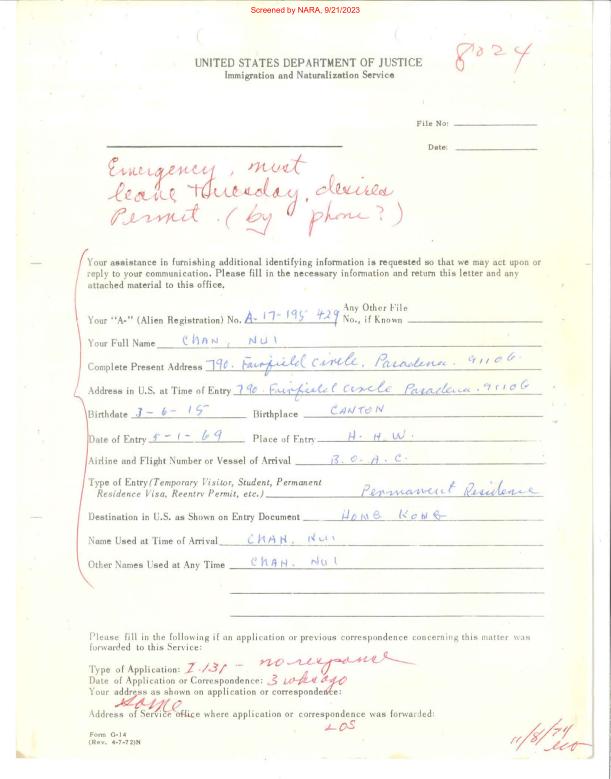 Screened by NARA, 9/21/2023
8024
UNITED STATES DEPARTMENT OF JUSTICE
Immigration and Naturalization Service
File No:
Date:
Emergency, must
leave Tuesday, desires
Permit. (by phone?)
Your assistance in furnishing additional identifying information is requested so that we may act upon or
reply to your communication. Please fill in the necessary information and return this letter and any
attached material to this office.
Your "A-" (Alien Registration) No. A-17-195 429 Any Other File No., if Known
Your Full Name CHAN, NUI
Complete Present Address 790. Fairfield Circle, Pasadena. 91106.
Address in U.S. at Time of Entry 790 Fairfield Circle Pasadena. 91106
Birthdate 3-6-15 Birthplace CANTON
Date of Entry 5-1-69 Place of Entry H. H. W.
Airline and Flight Number or Vessel of Arrival B. O. A. C.
Type of Entry (Temporary Visitor, Student, Permanent
Residence Visa, Reentry Permit, etc.) Permanent Residence
Destination in U.S. as Shown on Entry Document HONG KONG
Name Used at Time of Arrival CHAN, NUI
Other Names Used at Any Time CHAN. NUI
Please fill in the following if an application or previous correspondence concerning this matter was
forwarded to this Service:
Type of Application: I-131 - no response
Date of Application or Correspondence: 3 wks ago
Your address as shown on application or correspondence:
same
Address of Service office where application or correspondence was forwarded:
LOS
Form G-14
(Rev. 4-7-72)N
11/8/74